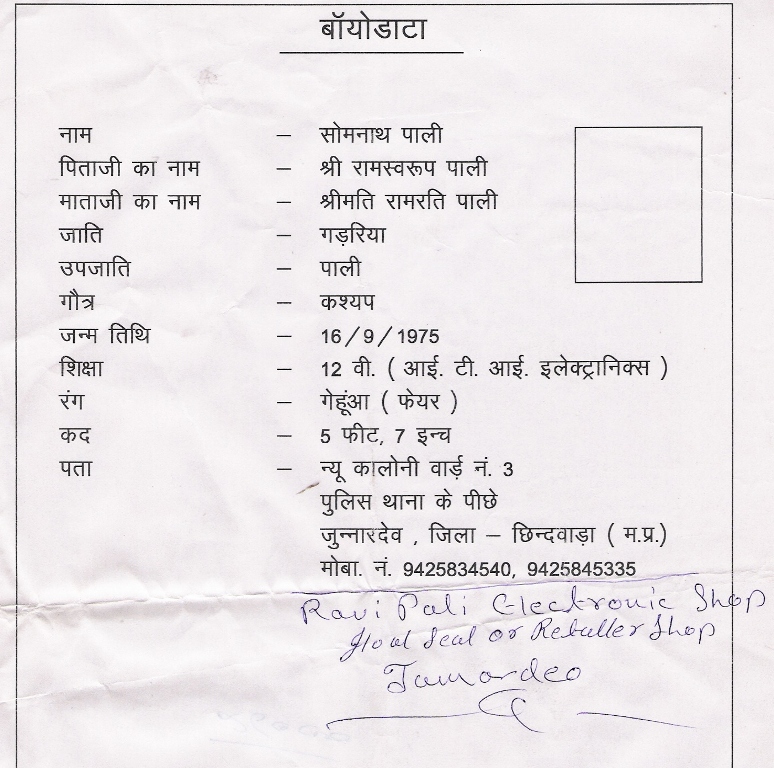 बॉयोडाटा
नाम – सोमनाथ पाली
पिताजी का नाम – श्री रामस्वरूप पाली
माताजी का नाम – श्रीमति रामरति पाली
जाति – गड़रिया
उपजाति – पाली
गौत्र – कश्यप
जन्म तिथि – 16/9/1975
शिक्षा – 12 वी. ( आई. टी. आई. इलेक्ट्रानिक्स )
रंग – गेहूंआ ( फेयर )
कद – 5 फीट, 7 इन्च
पता – न्यू कालोनी वार्ड़ नं. 3
पुलिस थाना के पीछे
जुन्नारदेव , जिला – छिन्दवाड़ा ( म.प्र.)
मोबा. नं. 9425834540, 9425845335
Ravi Pali Electronic Shop
or Shop